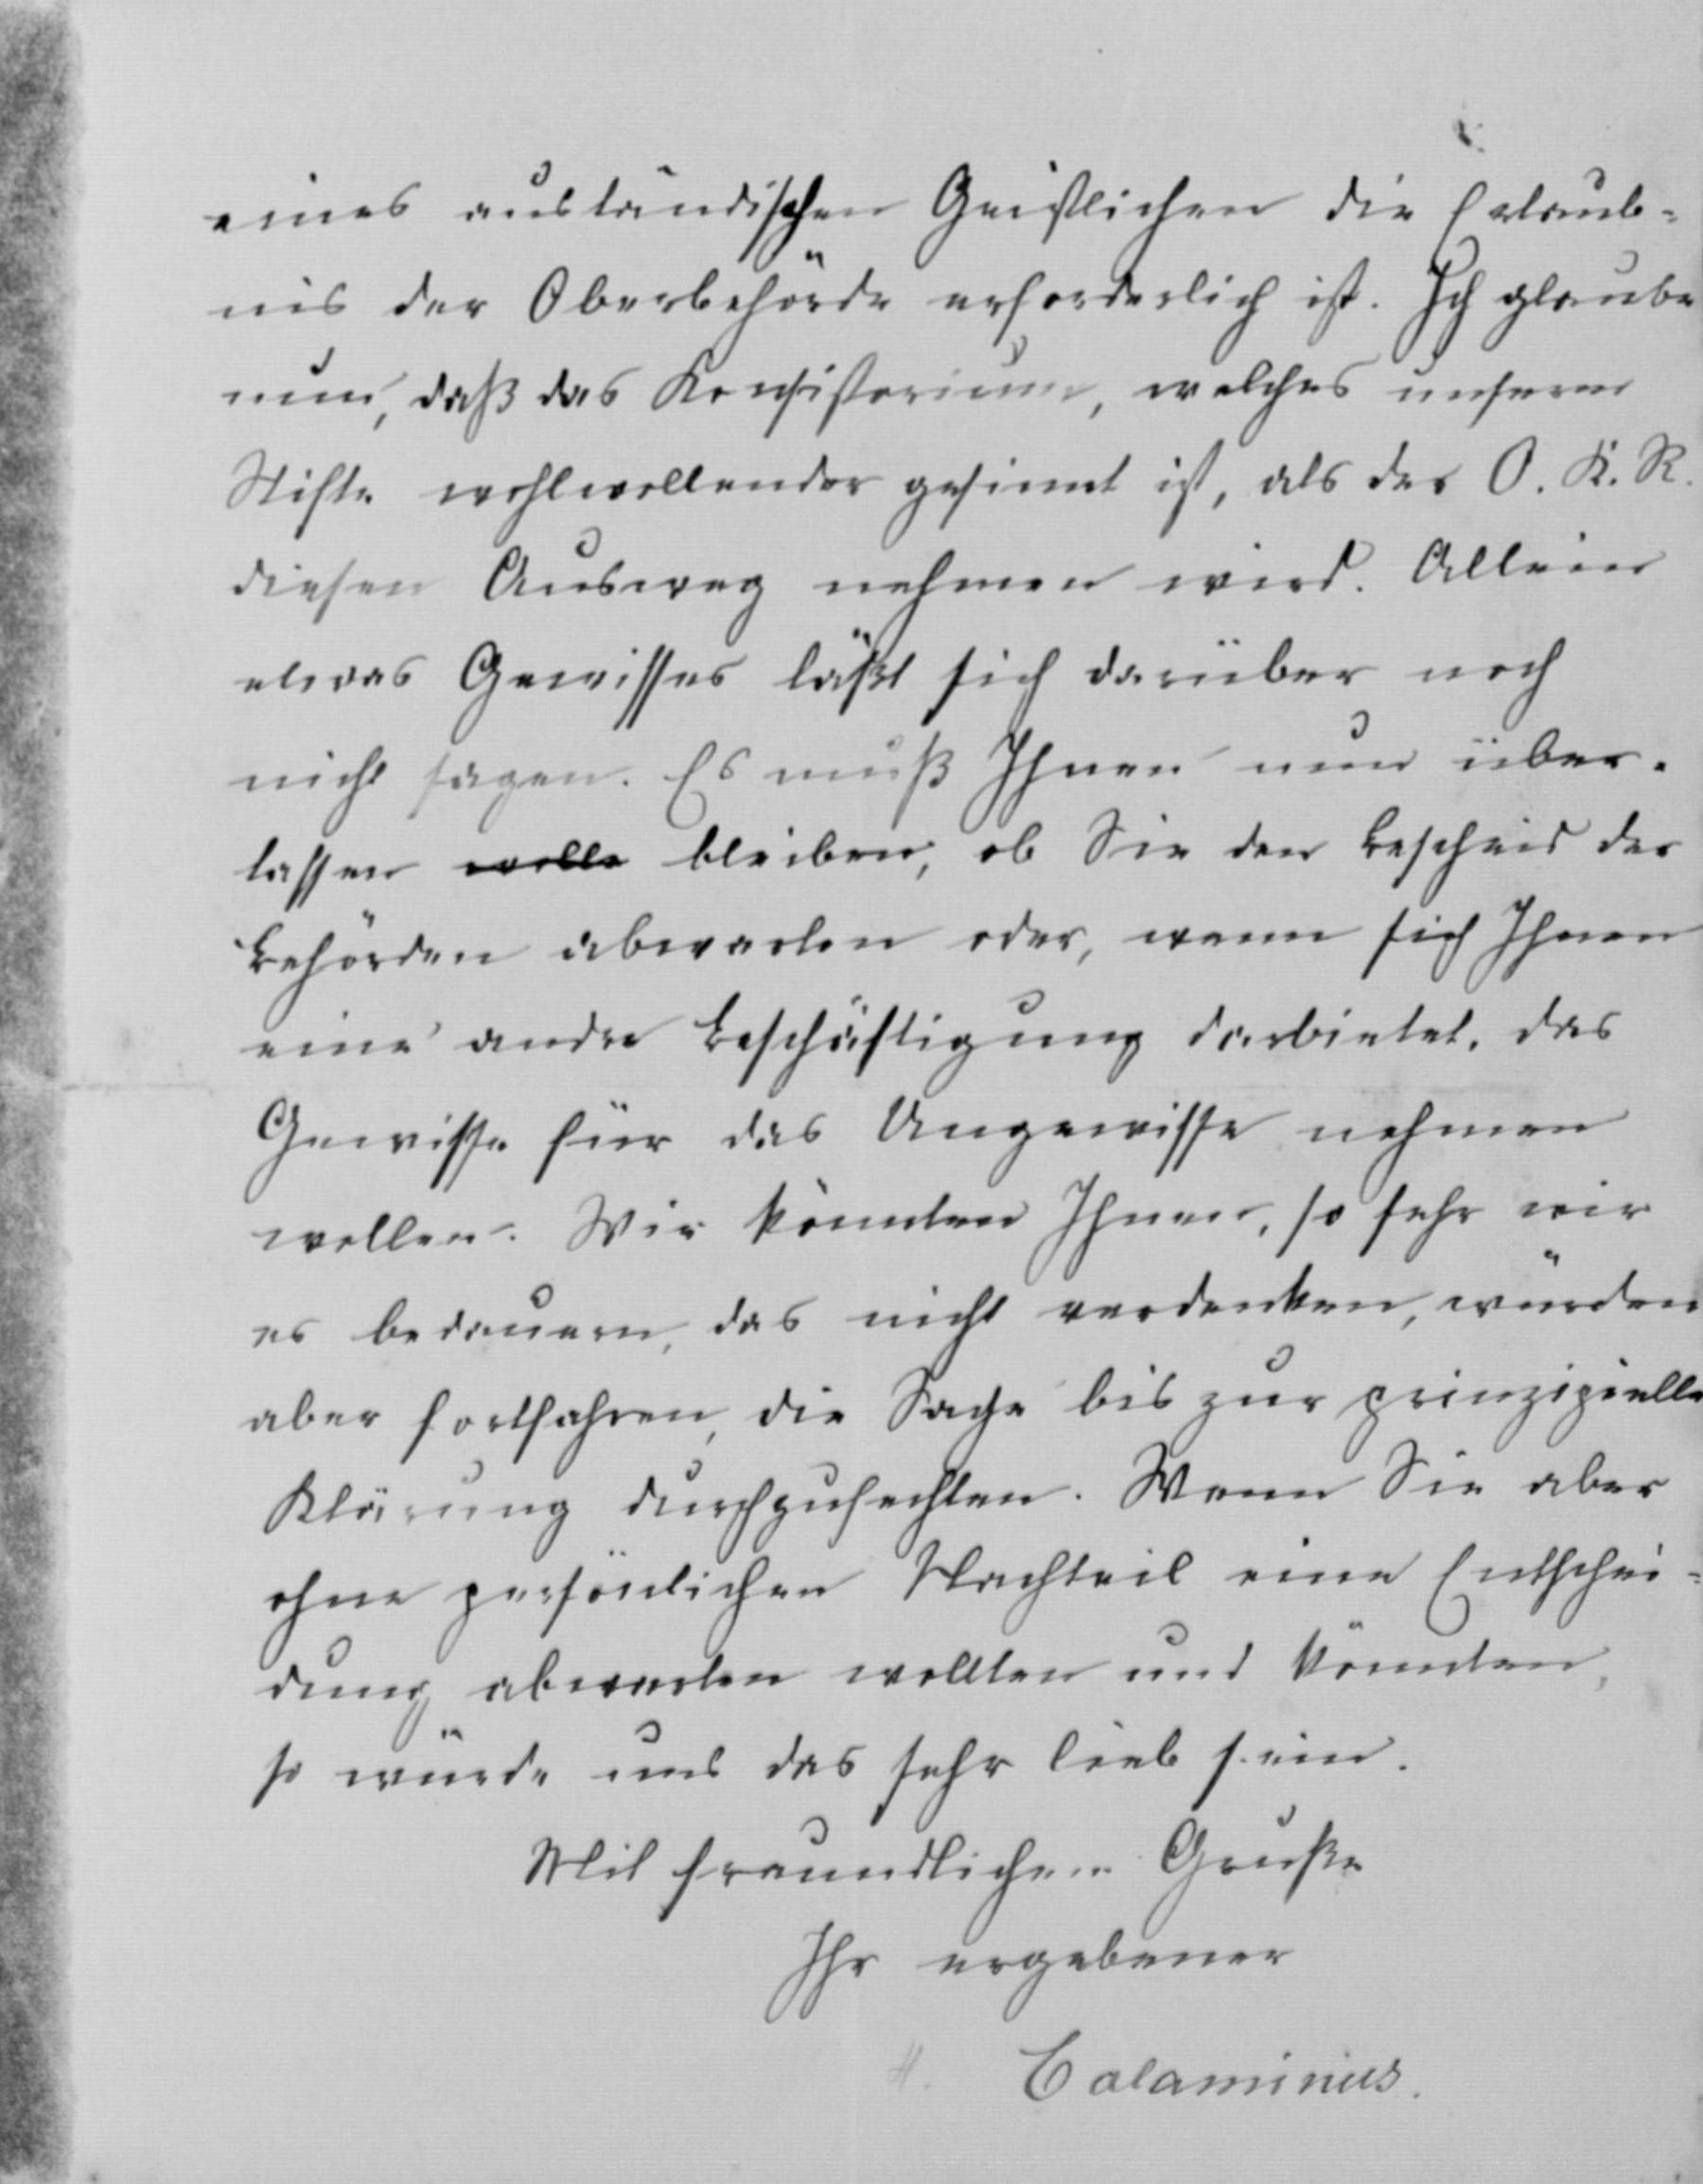 eines ausländischen Geistlichen die Erlaub-
nis der Oberbehörde erforderlich ist. Ich glaube
nun, daß das Konsistorium, welches unserem
Stifte wohlwollender gesinnt ist, als der O. K. R.
diesen Ausweg nehmen wird. Allein
etwas Gewisses läßt sich darüber noch
nicht sagen. Es muß Ihnen nun über-
lassen wolle bleiben, ob Sie den Bescheid der
Behörden abwarten oder, wenn sich Ihnen
eine andre Beschäftigung darbietet, das
Gewisse für das Ungewisse nehmen
wollen. Wir könnten Ihnen, so sehr wir
es bedauern, das nicht verdenken, würden
aber fortfahren, die Sache bis zur prinzipielle
Klärung durchzufechten. Wenn Sie aber
ohne persönlichen Nachteil eine Entschei-
dung abwarten wollten und könnten,
so würde uns das sehr lieb sein.
Mit freundlichem Gruße
Ihr ergebener
Calaminus.